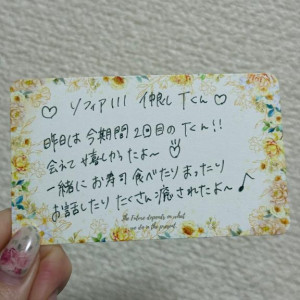 ♡ ソフィア111 仲良し Tくん ♡
昨日は今期間2回目のTくん!!
会えて嬉しかったよ〜
一緒にお寿司食べたりまったり
お話したりたくさん癒されたよ〜♪
The future depends on what
we do in the present.